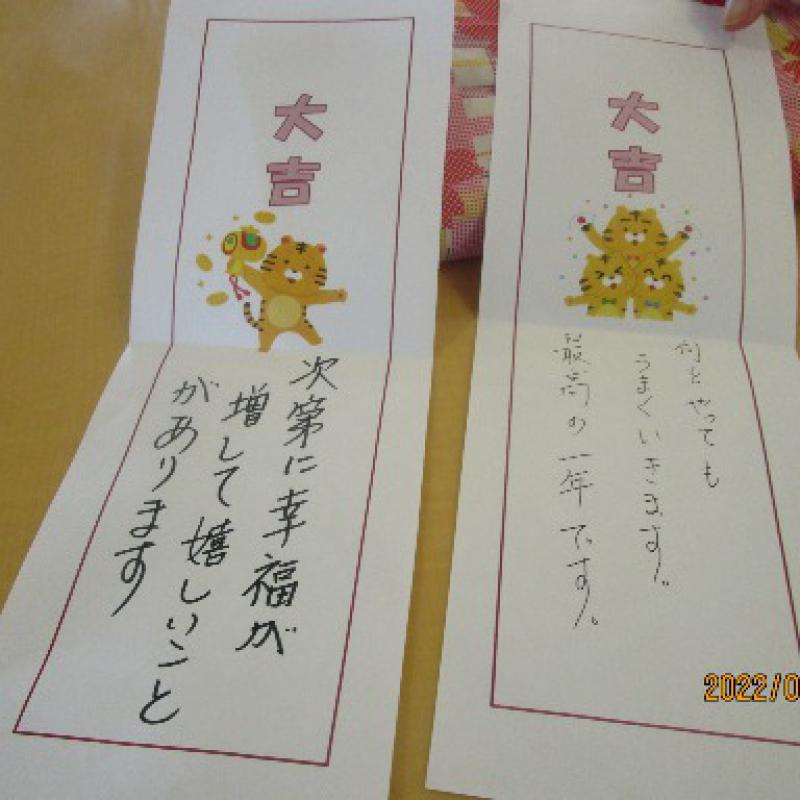 大吉
次第に幸福が
増して嬉しいこと
があります
大吉
何をやっても
うまくいきます。
最高の一年です。
2022/0